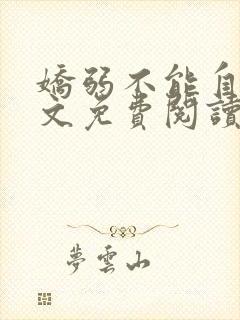 嬌弱不能自
文免費閱讀
夢雲山